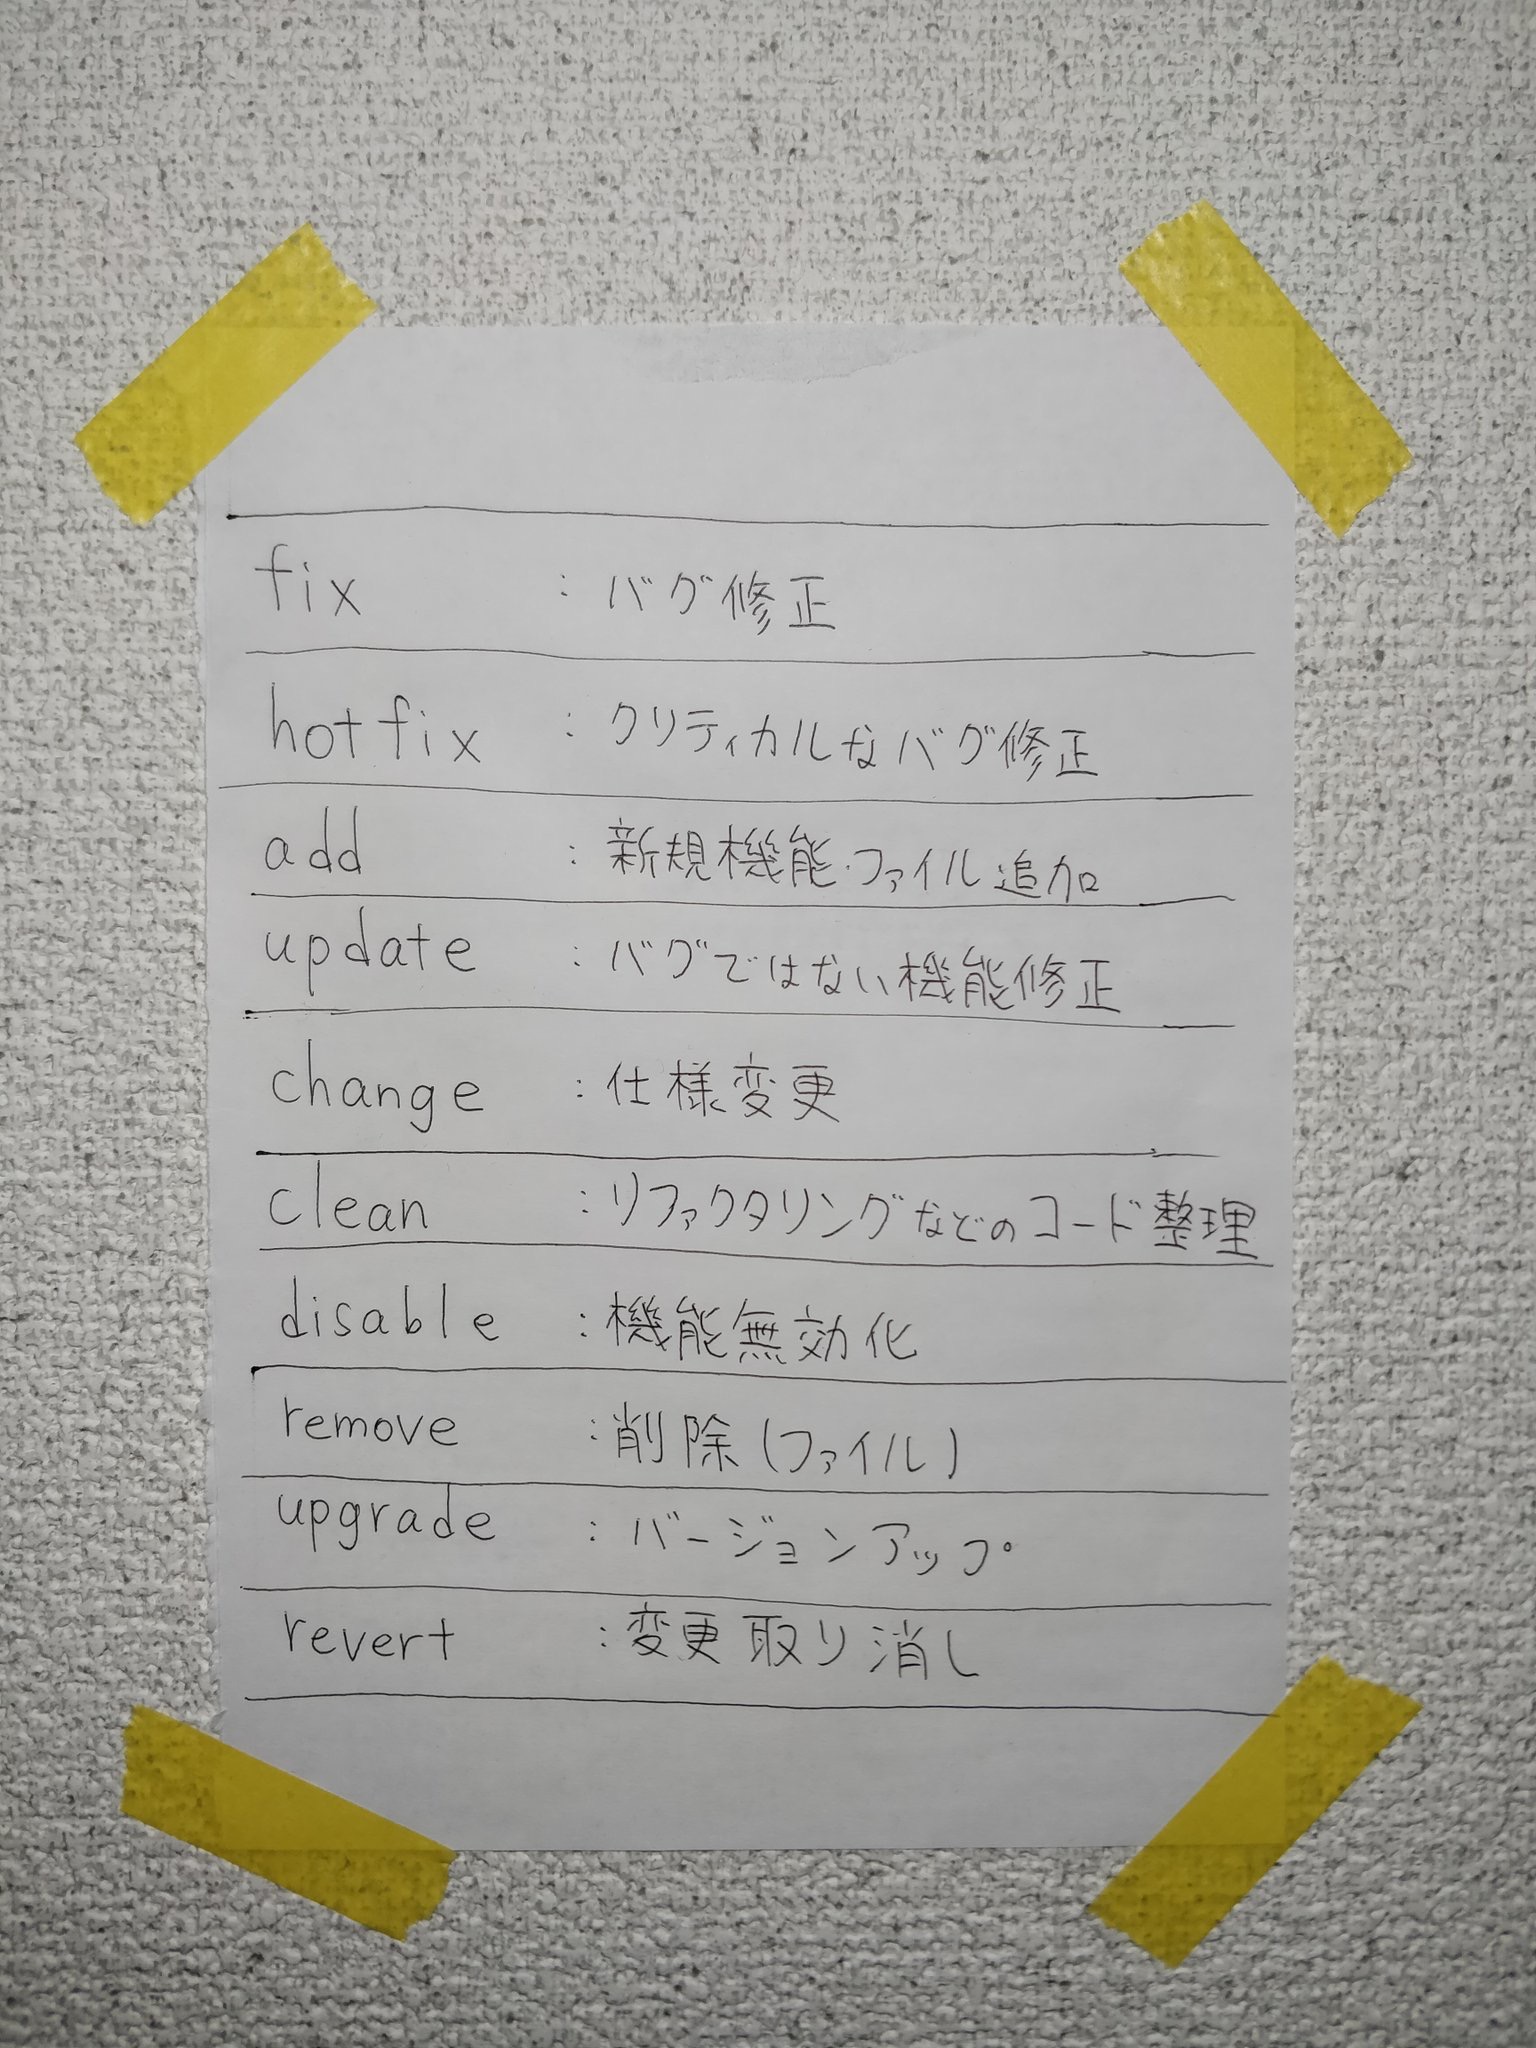 fix : バグ修正
hotfix : クリティカルなバグ修正
add : 新規機能・ファイル追加
update : バグではない機能修正
change : 仕様変更
clean : リファクタリングなどのコード整理
disable : 機能無効化
remove : 削除(ファイル)
upgrade : バージョンアップ
revert : 変更取り消し